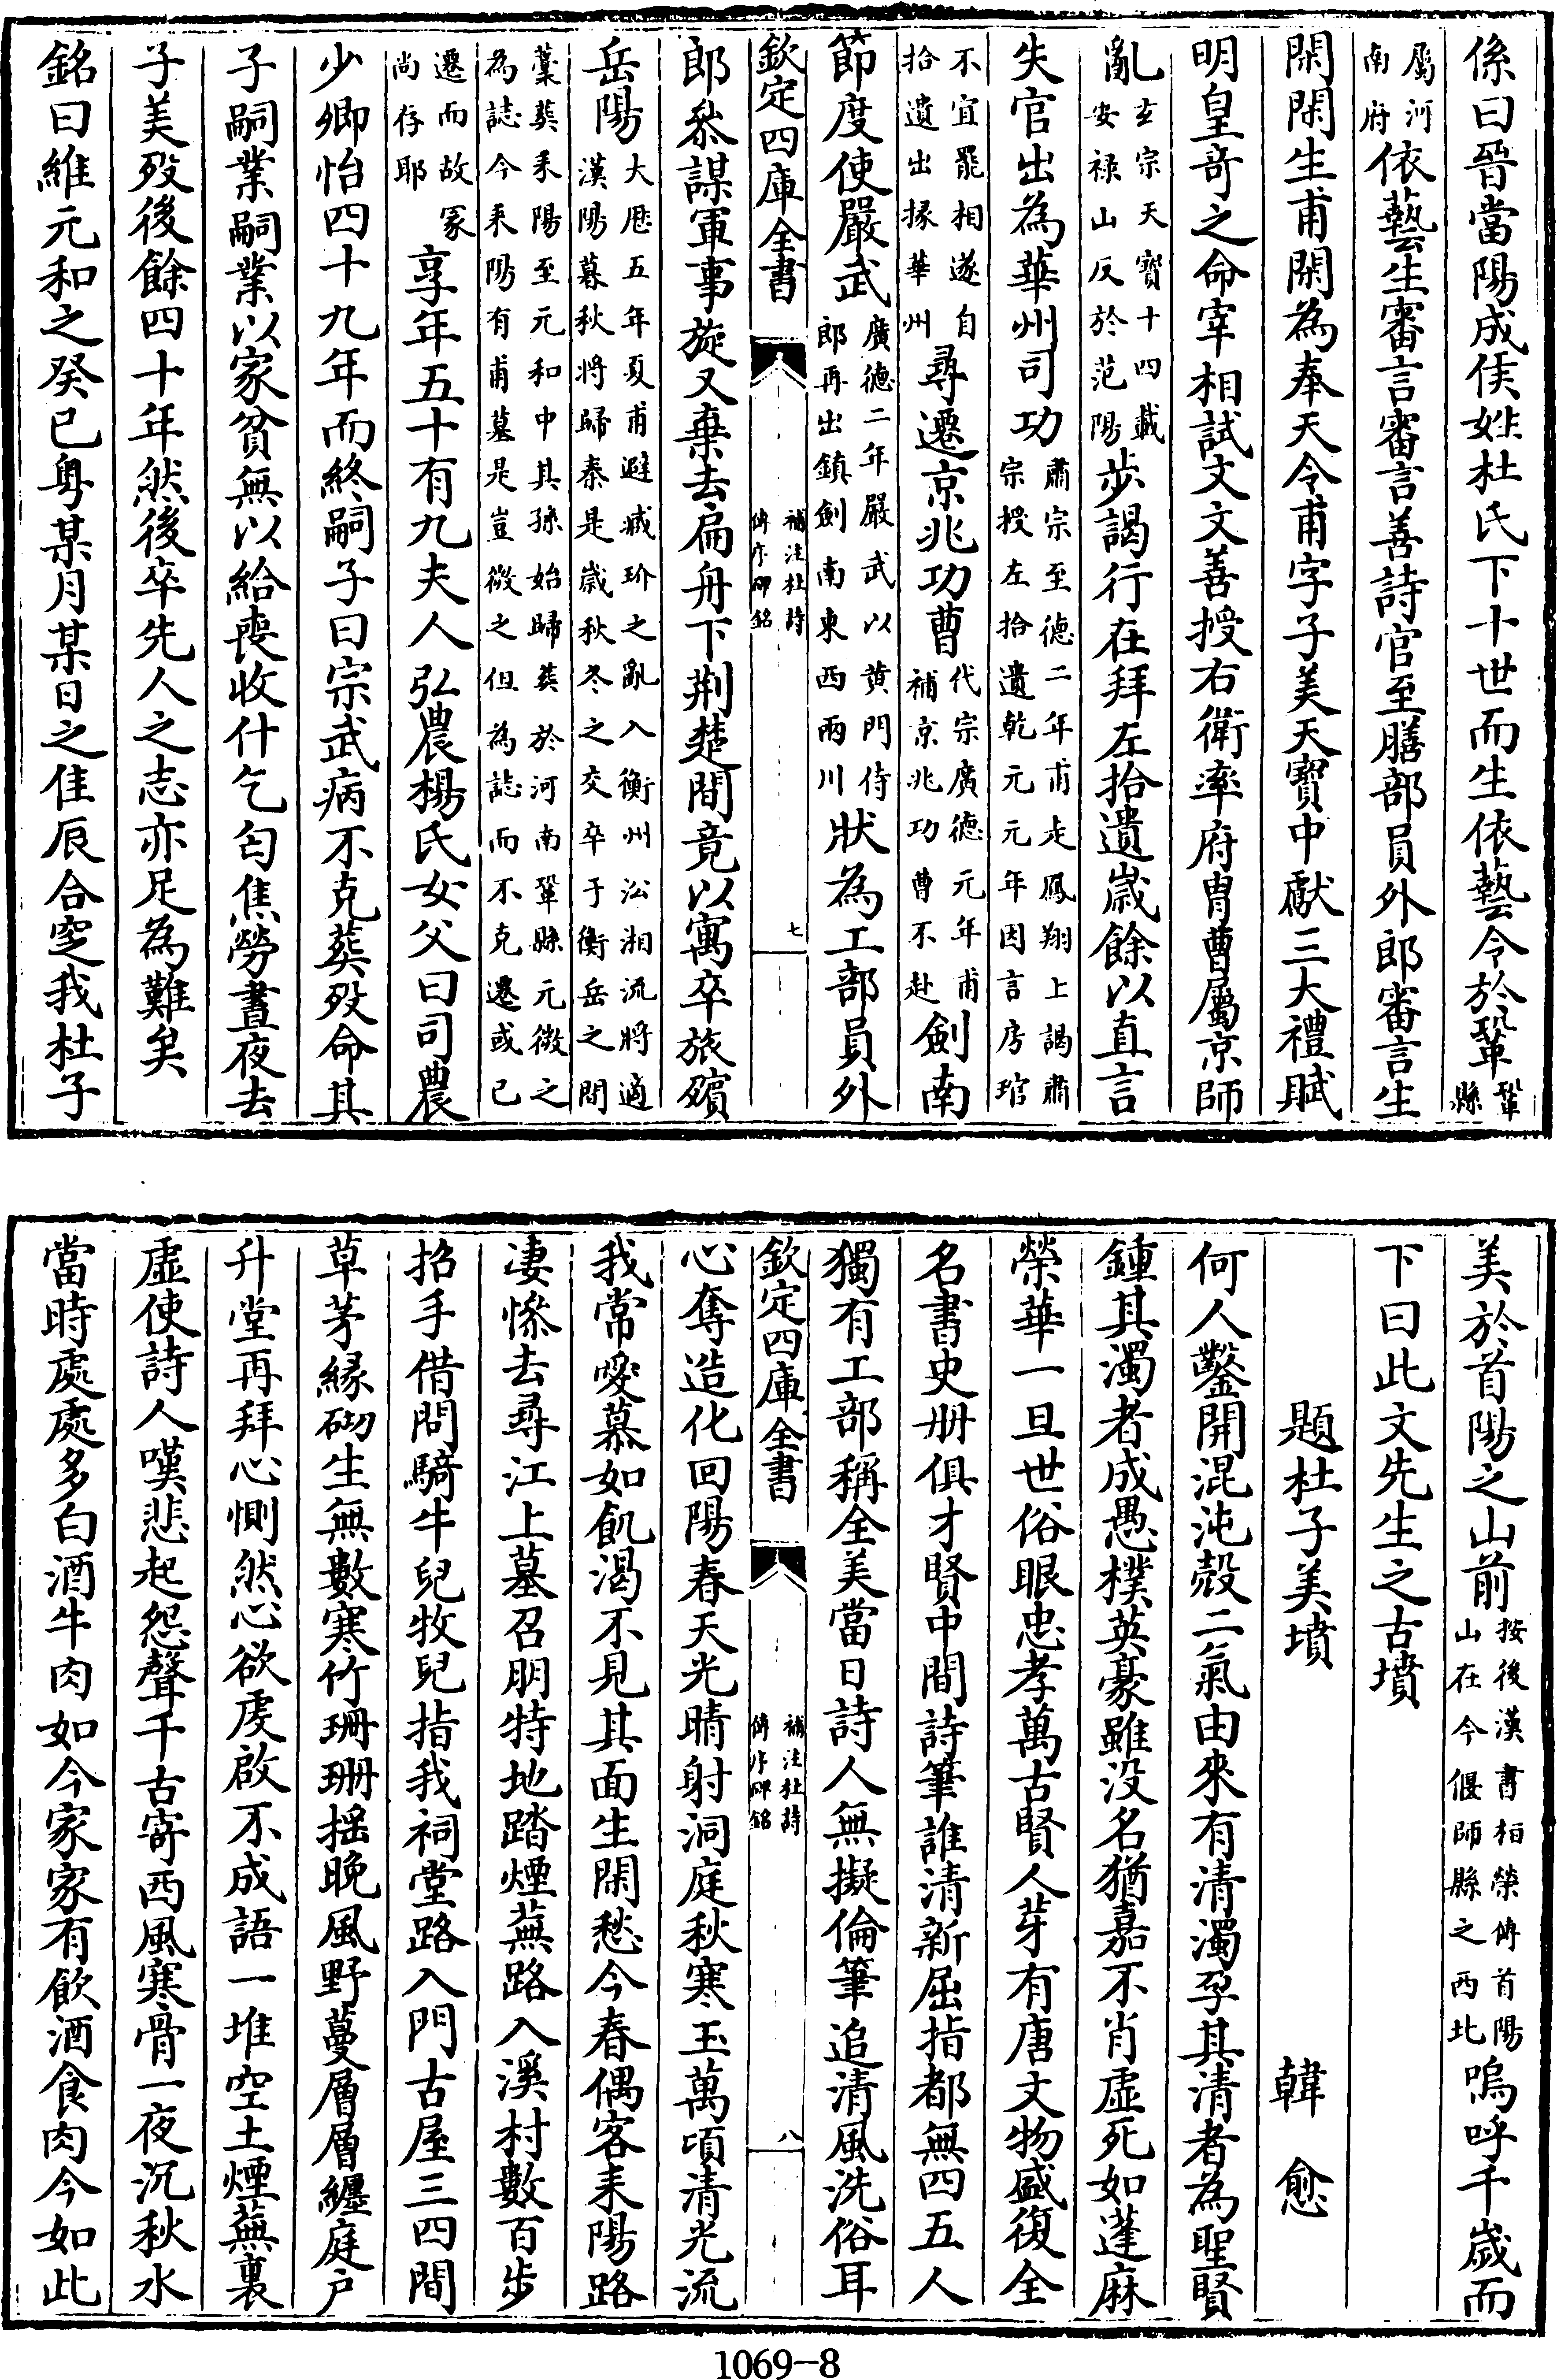 係曰晉當陽成侯姓杜氏下十世而生依藝令於鞏鞏縣
屬河南府依藝生審言審言善詩官至膳部員外郎審言生
閑閑生甫閑為奉天令甫字子美天寶中獻三大禮賦
明皇竒之命宰相試文文善授右衛率府胄曹屬京師
亂玄宗天寶十四載安祿山反於范陽步謁行在拜左拾遺嵗餘以直言
失官出為華州司功肅宗至德二年甫走鳳翔上謁肅宗授左拾遺乾元元年因言房琯
不宜罷相遂自拾遺出掾華州尋遷京兆功曹代宗廣德元年甫補京兆功曹不赴劍南
節度使嚴武廣德二年嚴武以黄門侍郎再出鎮劍南東西兩川狀為工部員外
欽定四庫全書 補注杜詩傳序碑銘 七
郎叅謀軍事旋又棄去扁舟下荆楚間竟以寓卒旅殯
岳陽大厯五年夏甫避臧玠之亂入衡州㳂湘流將適漢陽暮秋將歸秦是嵗秋冬之交卒于衡岳之間
藁葬耒陽至元和中其孫始歸葬於河南鞏縣元微之為誌今耒陽有甫墓是豈微之但為誌而不克遷或已
遷而故冢尚存耶享年五十有九夫人弘農楊氏女父曰司農
少卿怡四十九年而終嗣子曰宗武病不克葬殁命其
子嗣業嗣業以家貧無以給喪收什乞匄焦勞晝夜去
子美殁後餘四十年然後卒先人之志亦足為難矣
銘曰維元和之癸巳粤某月某日之佳辰合窆我杜子
美於首陽之山前按後漢書桓榮傳首陽山在今偃師縣之西北嗚呼千嵗而
下曰此文先生之古墳
題杜子美墳 韓愈
何人鑿開混沌殻二氣由來有清濁孕其清者為聖賢
鍾其濁者成愚樸英豪雖没名猶嘉不肖虛死如蓬麻
榮華一旦世俗眼忠孝萬古賢人芽有唐文物盛復全
名書史册俱才賢中間詩筆誰清新屈指都無四五人
獨有工部稱全美當日詩人無擬倫筆追清風洗俗耳
欽定四庫全書 補注杜詩傳序碑銘 八
心奪造化回陽春天光晴射洞庭秋寒玉萬頃清光流
我常愛慕如飢渴不見其面生閑愁今春偶客耒陽路
淒慘去尋江上墓召朋特地踏煙蕪路入溪村數百步
招手借問騎牛兒牧兒指我祠堂路入門古屋三四間
草茅縁砌生無數寒竹珊珊揺晚風野蔓層層纒庭户
升堂再拜心惻然心欲虔啟不成語一堆空土煙蕪裏
虛使詩人嘆悲起怨聲千古寄西風寒骨一夜沉秋水
當時處處多白酒牛肉如今家家有飲酒食肉今如此
1069-8